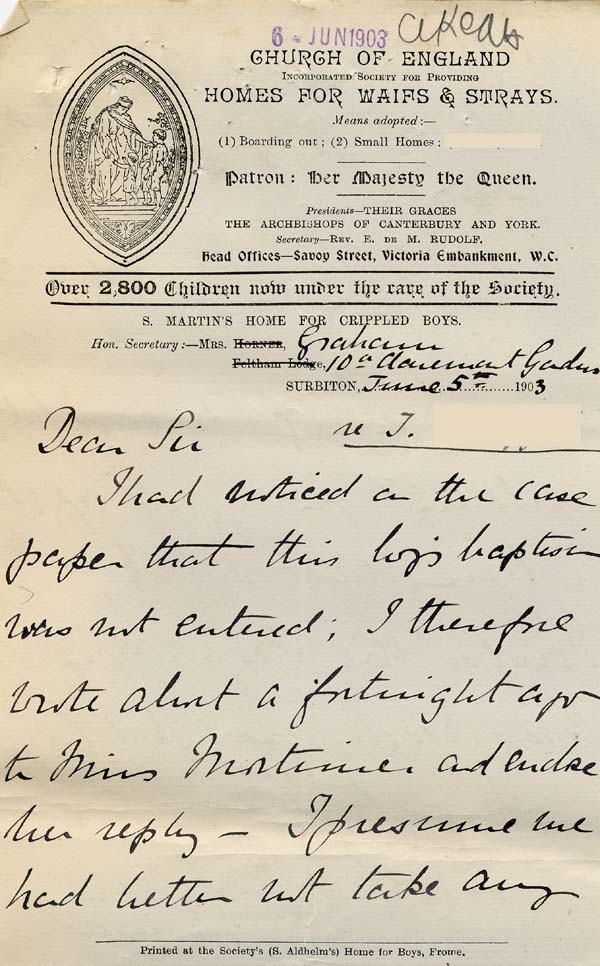 6 - JUN 1903
CHURCH OF ENGLAND
INCORPORATED SOCIETY FOR PROVIDING
HOMES FOR WAIFS & STRAYS.
Means adopted:—
(1) Boarding out; (2) Small Homes:
Patron: Her Majesty the Queen.
Presidents—THEIR GRACES
THE ARCHBISHOPS OF CANTERBURY AND YORK.
Secretary—REV. E. DE M. RUDOLF.
Head Offices—Savoy Street, Victoria Embankment, W.C.
Over 2,800 Children now under the care of the Society.
S. MARTIN'S HOME FOR CRIPPLED BOYS.
Hon. Secretary:—MRS. HORNER, Graham
Feltham Lodge, 10a Claremont Gardens
SURBITON, June 5th 1903
Dear Sir re J.
I had noticed on the case
paper that this boy's baptism
was not entered; I therefore
wrote about a fortnight ago
to Miss Mortimer and enclose
her reply — I presume we
had better not take any
Printed at the Society's (S. Aldhelm's) Home for Boys, Frome.